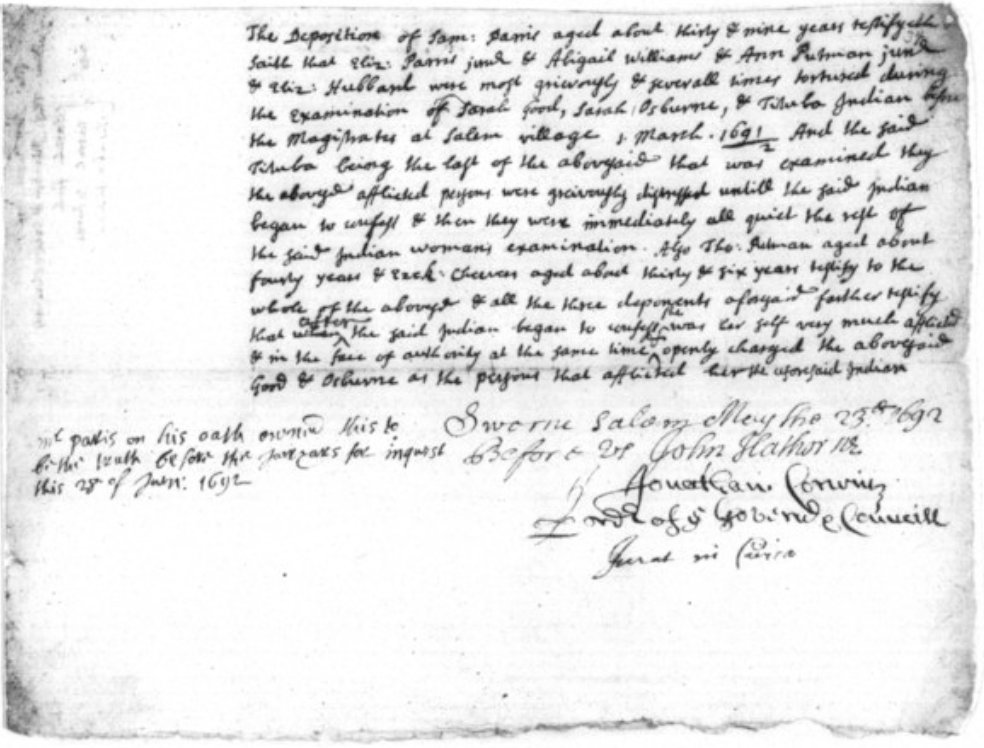 The Deposition of Sam: Parris aged about thirty & nine years testifyeth &
saith that Eliz: Parris junr & Abigail Williams & Ann Putman junr
& Eliz: Hubbard were most grievously & severall times tortured during
the examination of Sarah Good, Sarah Osburne, & Tituba Indian before
the Magistrates at Salem village 1. March. 1691/2 And the said
Tituba being the last of the abovesaid that was examined they
the abovesd afflicted persons were grievously distressed untill the said Indian
began to confess & then they were immediately all quiet the rest of
the said Indian womans examination. Also Tho: Putman aged about
fourty years & Ezek: Cheevers aged about thirty & six years testify to the
whole of the abovesd & all the three deponents aforesaid farther testify
that after the said Indian began to confess she was her self very much afflicted
& in the face of authority at the same time & openly charged the abovesaid
Good & Osburne as the persons that afflicted her the aforesaid Indian
Sworne Salem May the 23d 1692
Before Us John Hathorne
Jonathan Corwin
ordr of ye Govenr & Councill
Jurat in Curia
mr parris on his oath owned this to
be the truth before the Juryars for inquest
this 28 of Jun: 1692